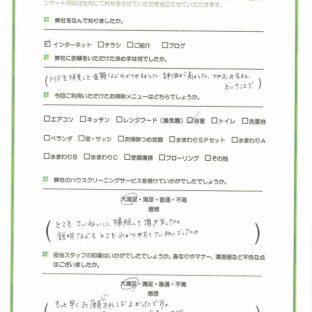 ンケート用紙は社内にて共有をさせていただき役立たせていただきます。
弊社をなんで知りましたか。
☑インターネット □チラシ □ご紹介 □ブログ
弊社に依頼をいただけた決め手は何でしたか。
HPを拝見して金額などわかりやすかった、評価が高かった、地元の会社
ということで
今回ご利用いただけたお掃除メニューはどちらでしょうか。
□エアコン □キッチン □レンジフード（換気扇） ☑浴室 □トイレ □洗面台
□ベランダ □窓・サッシ □お掃除つめ放題 □水まわりSPセット □水まわりA
□水まわりB □水まわりC □定期清掃 □フローリング □その他
弊社のハウスクリーニングサービスを受けていかがでしたでしょうか。
大満足・満足・普通・不満
感想
とてもていねいに掃除して頂きました。
説明などもとてもわかりやすくていねいでした。
担当スタッフの印象はいかがでしたでしょうか。身なりやマナー、清潔感など不快な点
はございましたか。
大満足・満足・普通・不満
感想
もっと早くお願いすればよかったです。